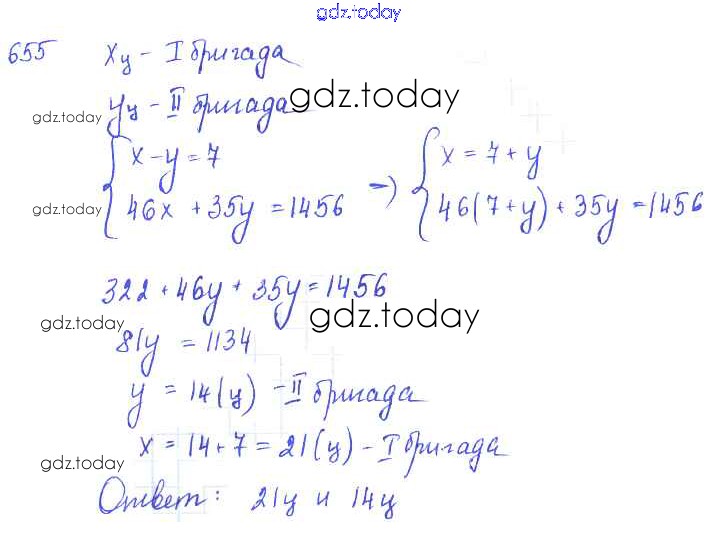 gdz.today
655 xц - I бригада
yц - II бригада gdz.today
gdz.today
{ x - y = 7
46x + 35y = 1456 → { x = 7 + y
46(7+y) + 35y = 1456
gdz.today
322 + 46y + 35y = 1456
gdz.today gdz.today
81y = 1134
y = 14(ц) - II бригада
x = 14 + 7 = 21(ц) - I бригада
gdz.today
Ответ: 21ц и 14ц